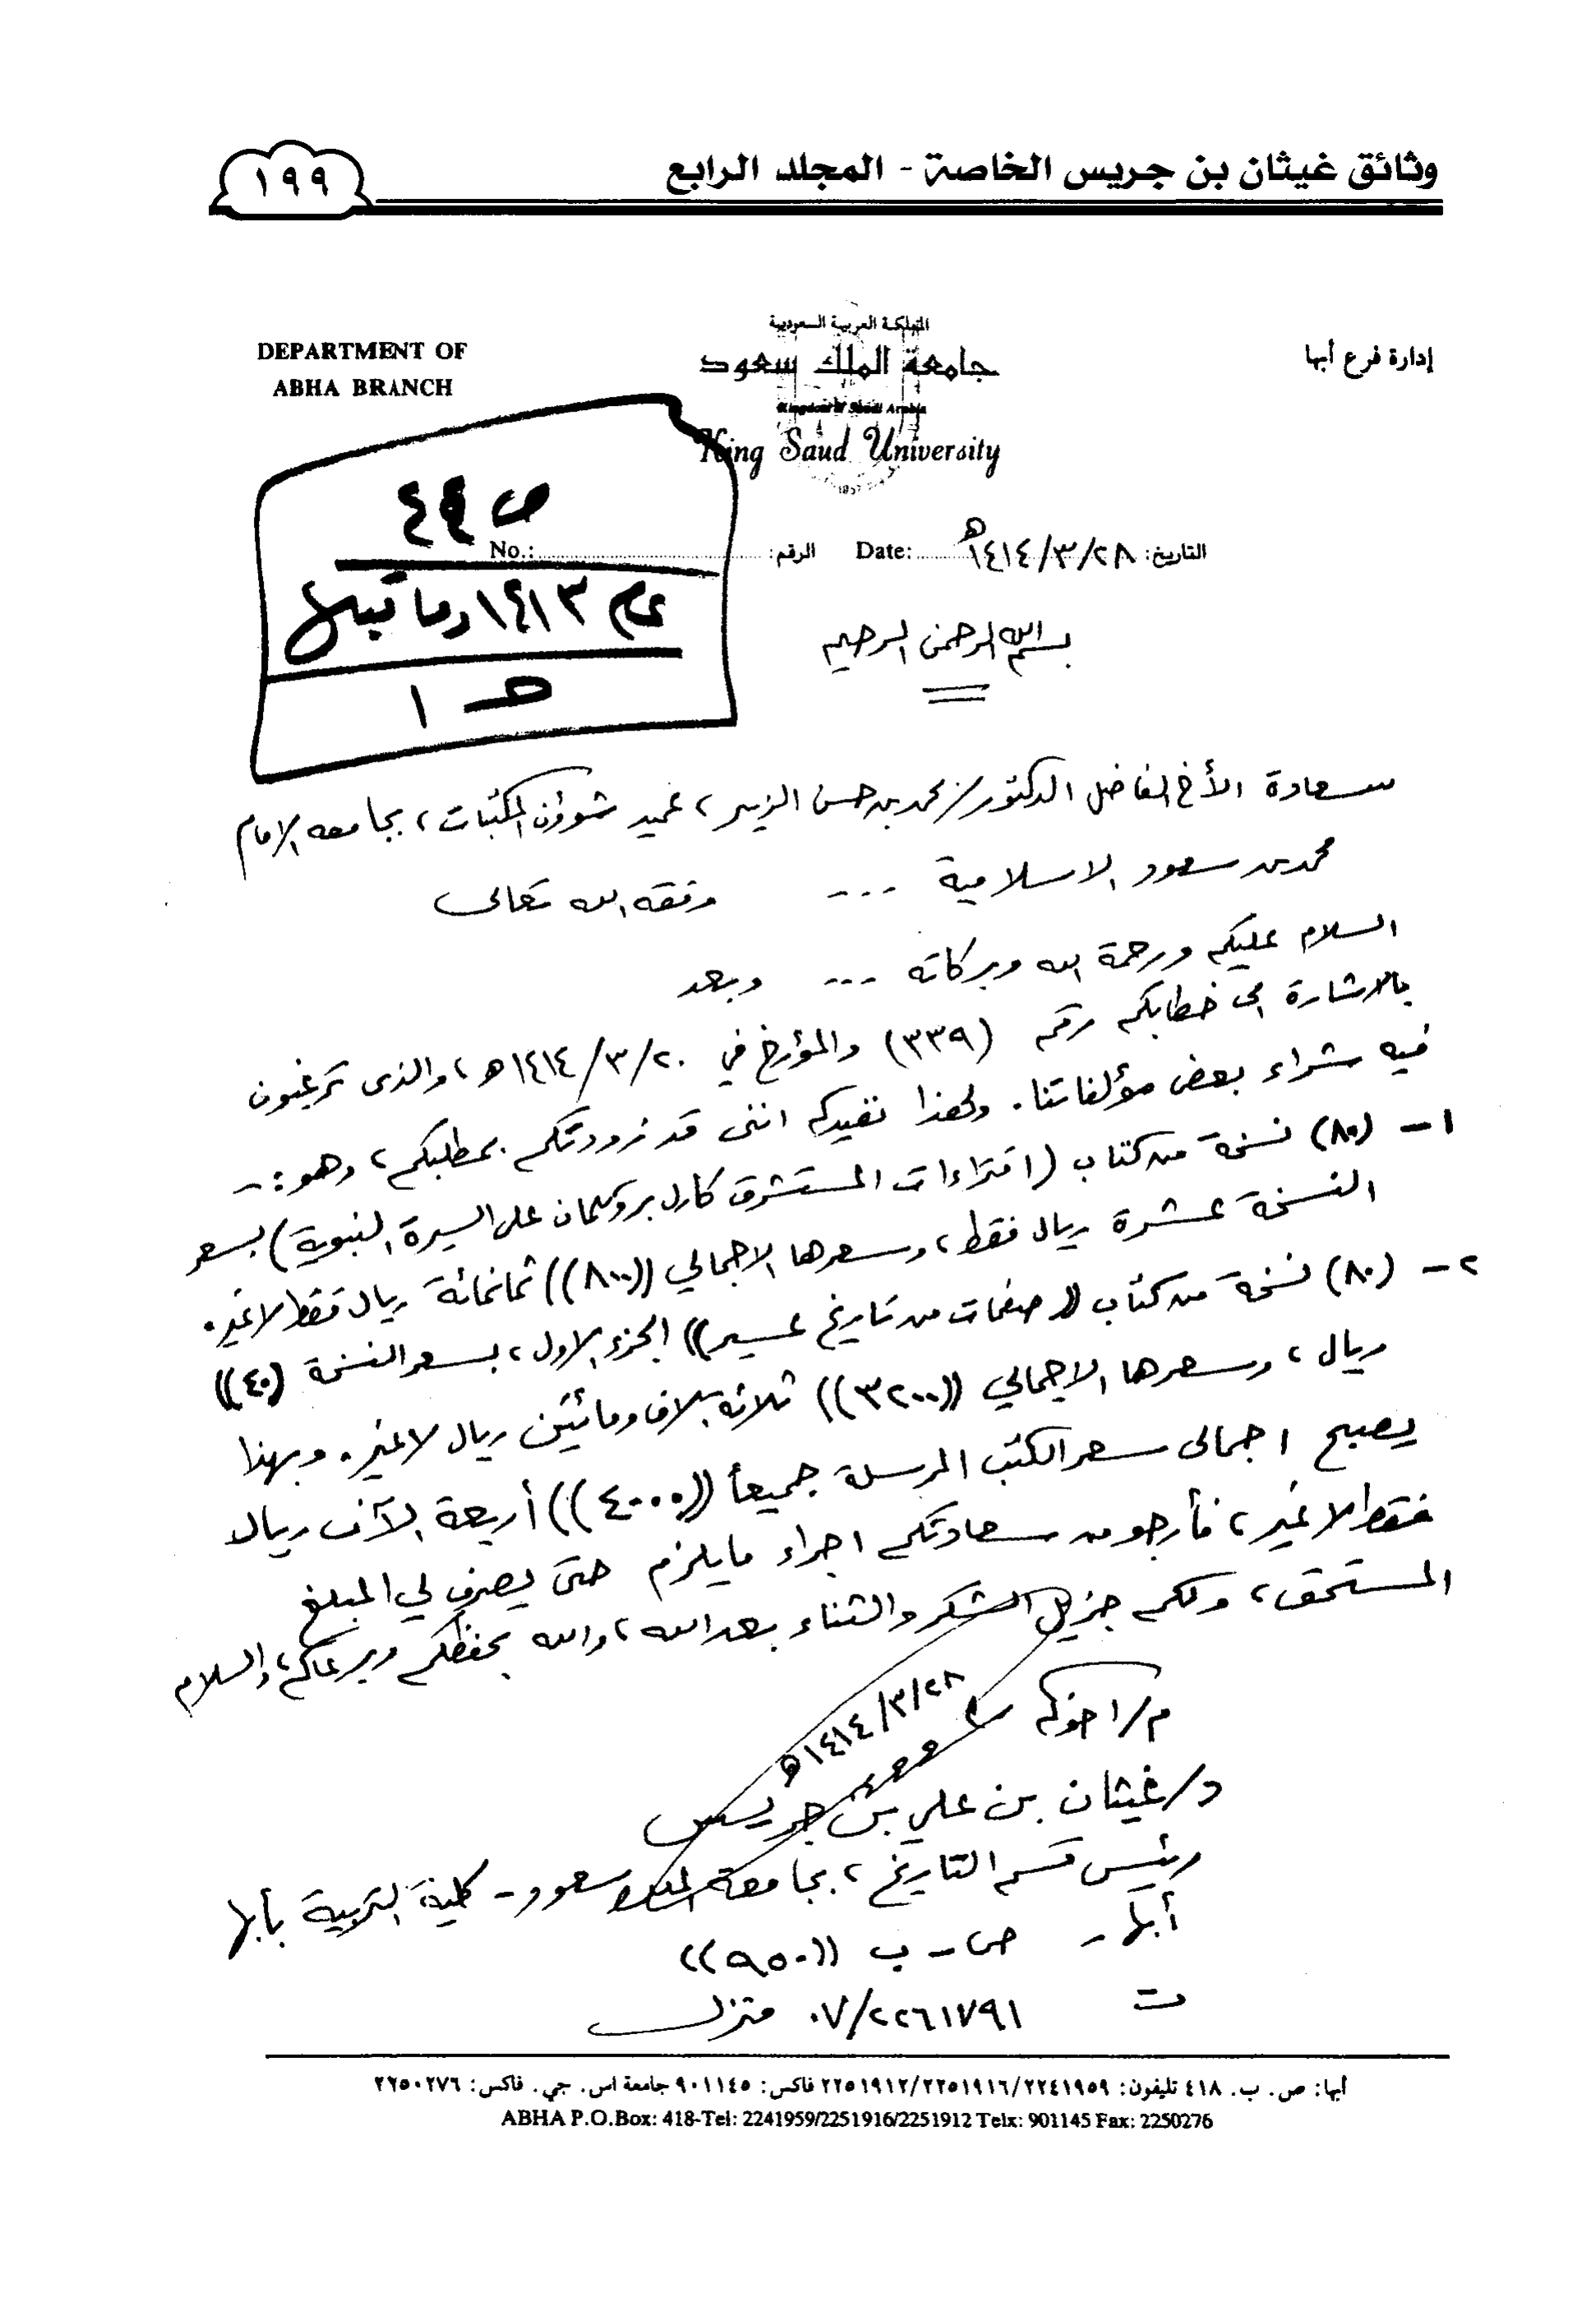 وثائق غيثان بن جريس الخاصة - المجلد الرابع
١٩٩
إدارة فرع أبها
المملكة العربية السعودية
جامعة الملك سعود
Kingdom of Saudi Arabia
King Saud University
1957
DEPARTMENT OF
ABHA BRANCH
التاريخ: ١٤١٤/٣/٢٨هـ Date: الرقم: No.:
ص ٤٩
عام ١٤١٣ وما قبلها
حـ ١
بسم الله الرحمن الرحيم
سعادة الأخ الفاضل الدكتور/ محمد بن حسن الزير، عميد شؤون المكتبات، بجامعة الامام
محمد بن سعود الاسلامية --- وفقه الله تعالى
السلام عليكم ورحمة الله وبركاته --- وبعد
بالاشارة الى خطابكم رقم (٣٣٩) والمؤرخ في ١٤١٤/٣/٢٠هـ، والذى ترغبون
فيه شراء بعض مؤلفاتنا. ولهذا نفيدكم اننى قد زودتكم بمطلبكم، وهو:-
١- (٨٠) نسخة من كتاب (افتراءات المستشرق كارل بروكلمان على السيرة النبوية) بسعر
النسخة عشرة ريال فقط، وسعرها الاجمالي ((٨٠٠)) ثمانمائة ريال فقط لاغير.
٢- (٨٠) نسخة من كتاب ((صفحات من تاريخ عسير)) الجزء الاول، بسعر النسخة (٤٠))
ريال، وسعرها الاجمالي ((٣٢٠٠)) ثلاثة آلاف ومائتين ريال لاغير. وبهذا
يصبح اجمالى سعر الكتب المرسلة جميعاً ((٤٠٠٠)) أربعة الآف ريال
فقط لاغير، فأرجو من سعادتكم اجراء مايلزم حتى يصرف لي المبلغ
المستحق، ولكم جزيل الشكر والثناء بعد الله، والله يحفظكم ويرعاكم، والسلام
م/ اخوكم
١٤١٤/٣/٢٨هـ
د/ غيثان بن علي بن جريس
رئيس قسم التاريخ، بجامعة الملك سعود - كلية التربية بأبها
أبها - ص - ب ((٩٥٠))
ت ٠٧/٢٢٦١٧٩١ منزل
أبها: ص. ب. ٤١٨ تليفون: ٢٢٥١٩١٢/٢٢٥١٩١٦/٢٢٤١٩٥٩ فاكس: ٩٠١١٤٥ جامعة اس. جي. فاكس: ٢٢٥٠٢٧٦
ABHA P.O.Box: 418-Tel: 2241959/2251916/2251912 Telx: 901145 Fax: 2250276